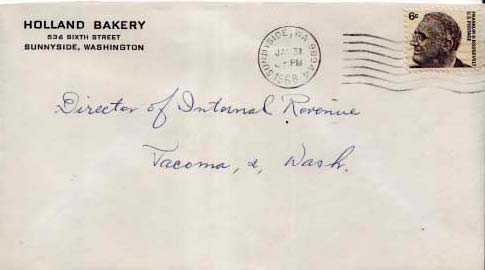 HOLLAND BAKERY
534 SIXTH STREET
SUNNYSIDE, WASHINGTON
SUNNYSIDE, WA 98944
JAN 31
PM
1968
6¢
FRANKLIN D. ROOSEVELT
U.S. POSTAGE
Director of Internal Revenue
Tacoma, 2, Wash.